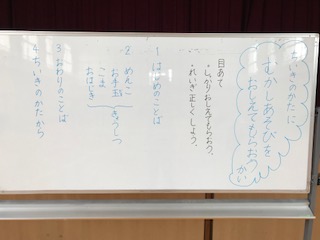 ちいきのかたに
むかしあそびを
おしえてもらおうかい
目あて
・しっかりおしえてもらおう。
・れいぎ正しくしよう。
1 はじめのことば
2 めんこ
お手玉
こま
おはじき
きょうしつ
3 おわりのことば
4 ちいきのかたから